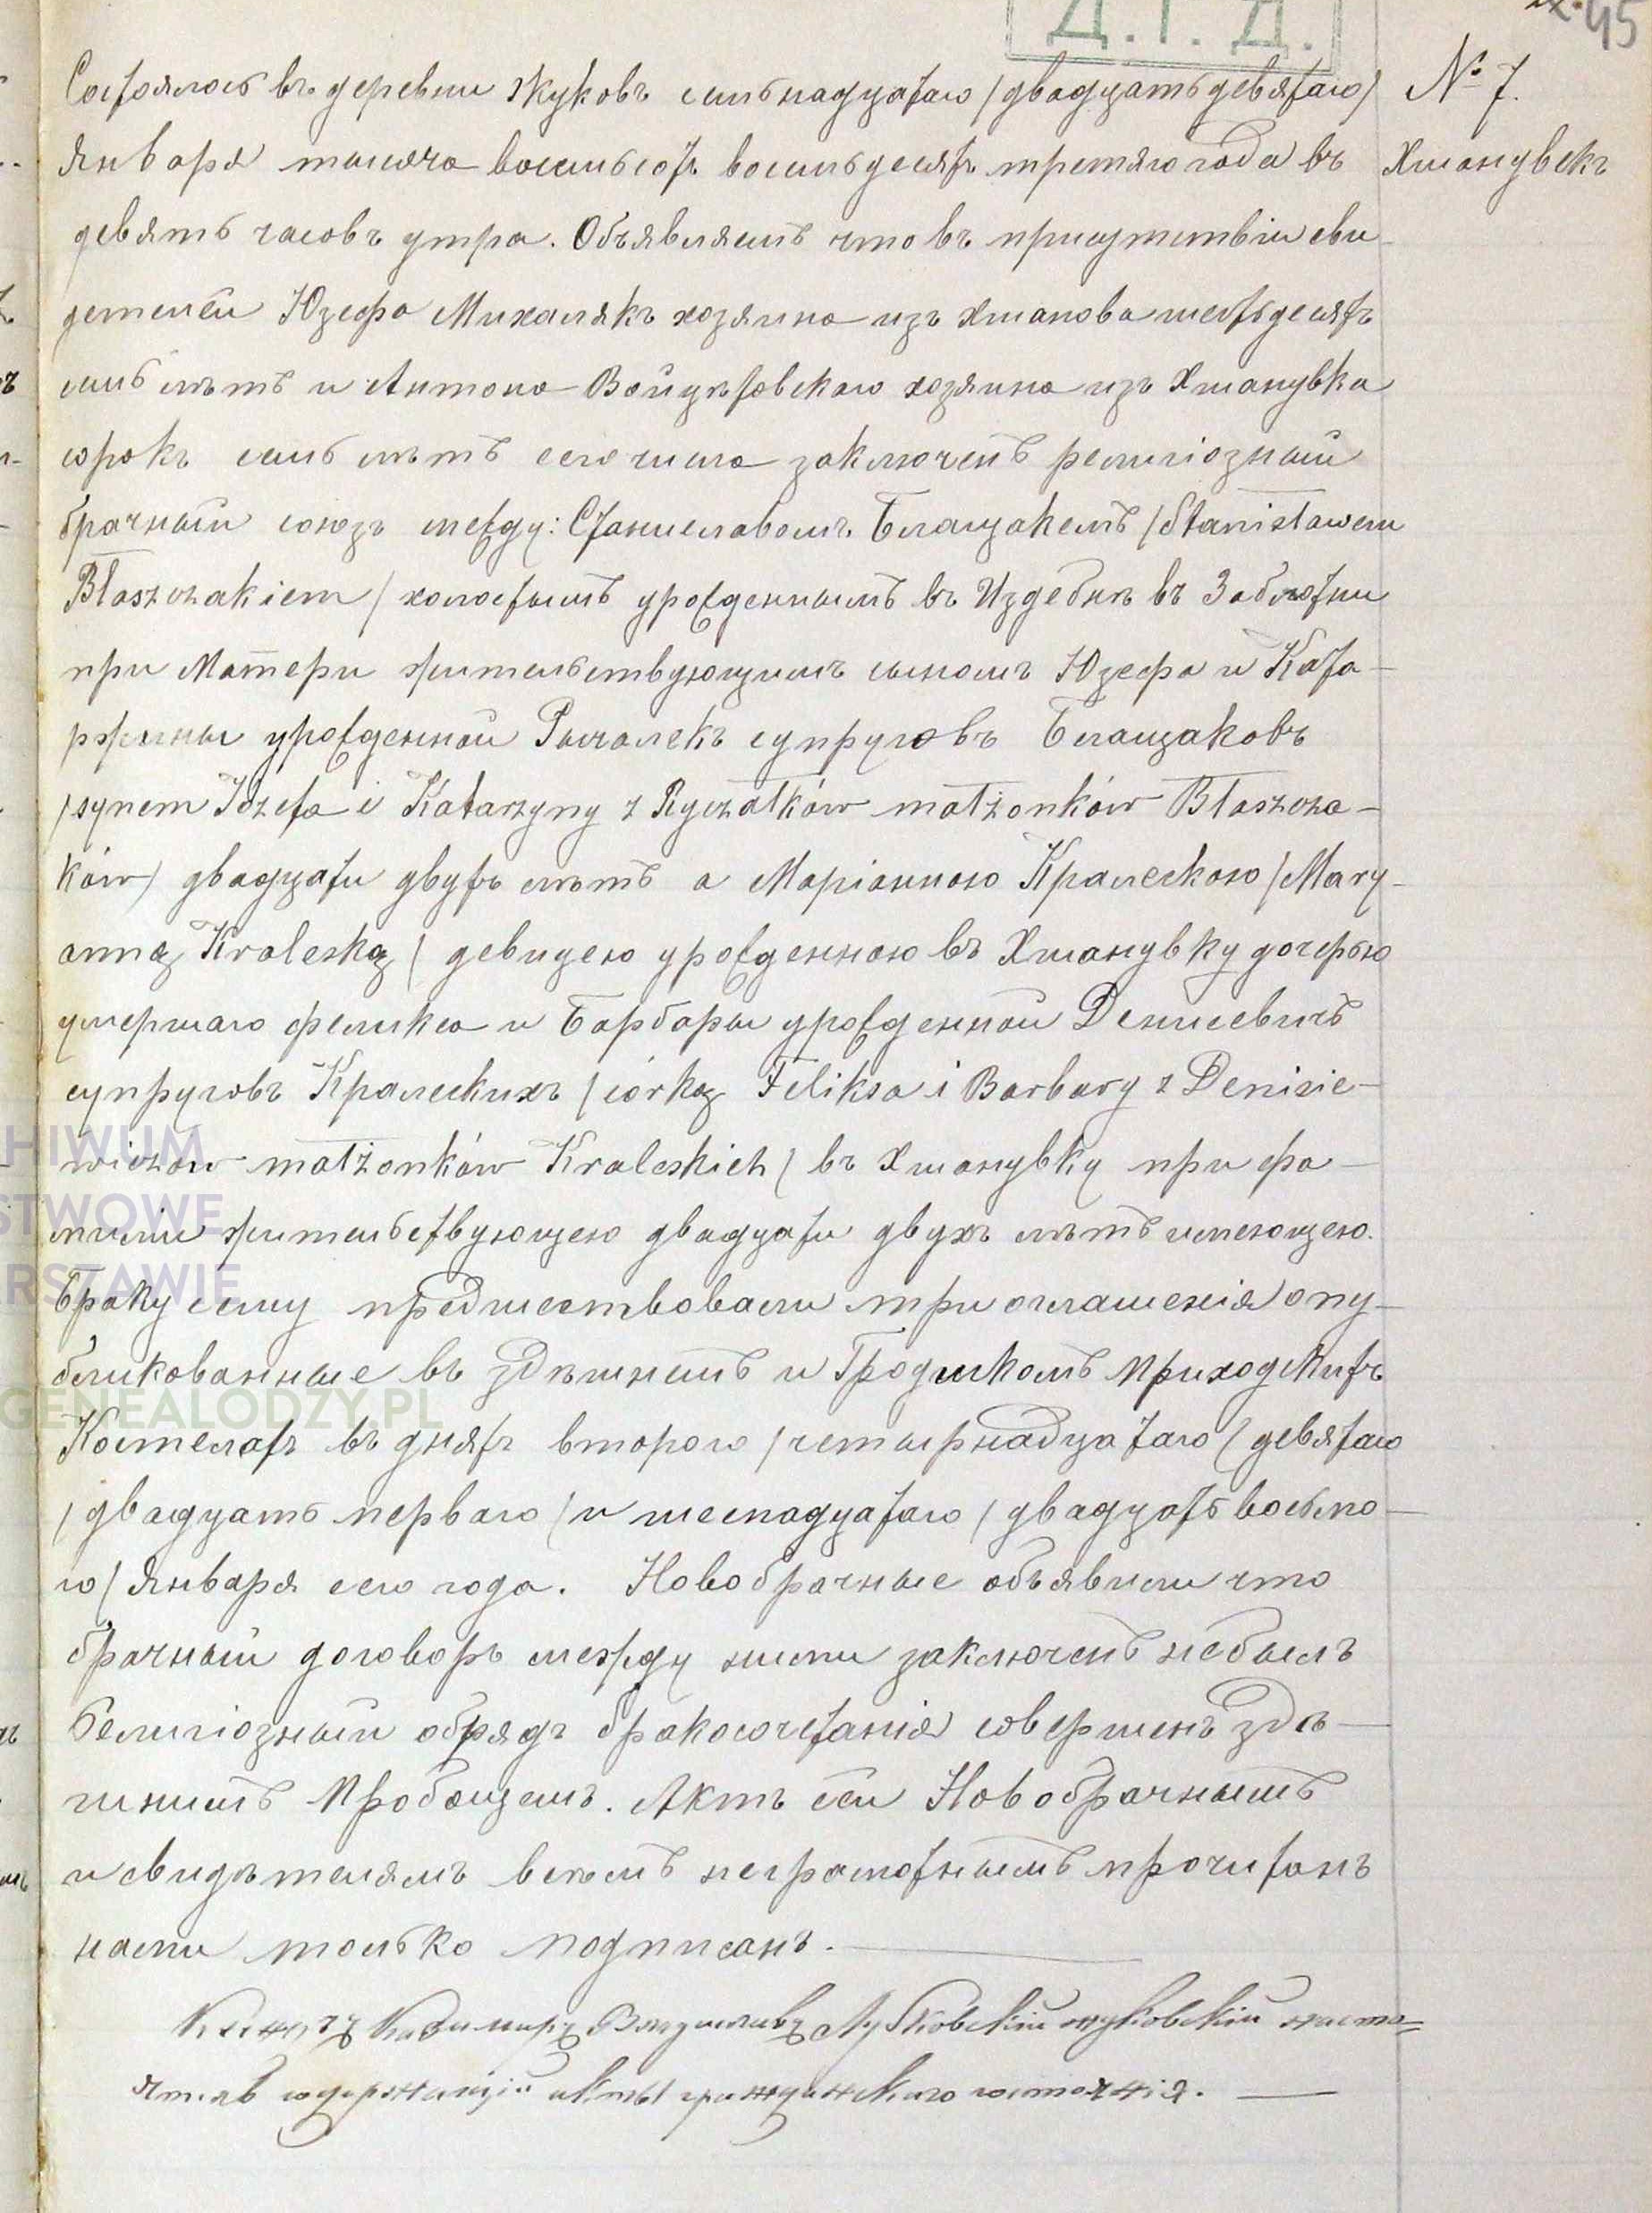 Д.Г.Д.
45
№ 7.
Хшанувекъ
Состоялось въ деревни Жуковъ семьнадцатаго /двадцать девятаго/
Января тысяча восемьсотъ восемьдесятъ третяго года въ
девять часовъ утра. Объявляемъ что въ присутствіи сви-
детелей Юзефа Михалякъ хозяина изъ Хшанова шестьдесятъ
семь лѣтъ и Антона Войцѣховскаго хозяина изъ Хшанувка
сорокъ семь лѣтъ сего числа заключенъ религіозный
брачный союзъ между: Станиславомъ Блащакемъ /Stanisławem
Błaszczakiem/ холостымъ урожденнымъ въ Издебнѣ въ Заблотни
при Матери жительствующимъ сыномъ Юзефа и Ката-
ржины урожденной Рычалекъ супруговъ Блащаковъ
/synem Józefa i Katarzyny z Ryczałków małżonków Błaszcza-
ków/ двадцати двухъ лѣтъ а Маріанною Кралескою /Mary-
anną Kraleską/ девицею урожденною въ Хшанувку дочерью
умершаго Феликса и Барбары урожденной Денисевичъ
супруговъ Кралескихъ /córką Feliksa i Barbary z Denisie-
wiczów małżonków Kraleskich/ въ Хшанувку при фа-
миліи жительствующею двадцати двухъ лѣтъ имеющею.
Браку сему предшествовали три оглашенія опу-
бликованные въ здѣшнемъ и Гродискомъ приходскихъ
Костелахъ въ дняхъ второго /четырнадцатаго/ девятаго
/двадцать перваго/ и шеснадцатаго /двадцать восьмо-
го/ Января сего года. Новобрачные объявили что
брачный договоръ между ними заключенъ небылъ
Религіозный обрядъ бракосочетанія совершенъ здѣ-
шнимъ Пробощемъ. Актъ сей Новобрачнымъ
и свидѣтелямъ всѣмъ неграмотнымъ прочитанъ
нами только подписанъ.
Ксендзъ Казимиръ Владиславъ Лубковскій жуковскій насто-
ятель содержащій акты гражданскаго состоянія.
ARCHIWUM
PAŃSTWOWE
W WARSZAWIE
GENEALODZY.PL